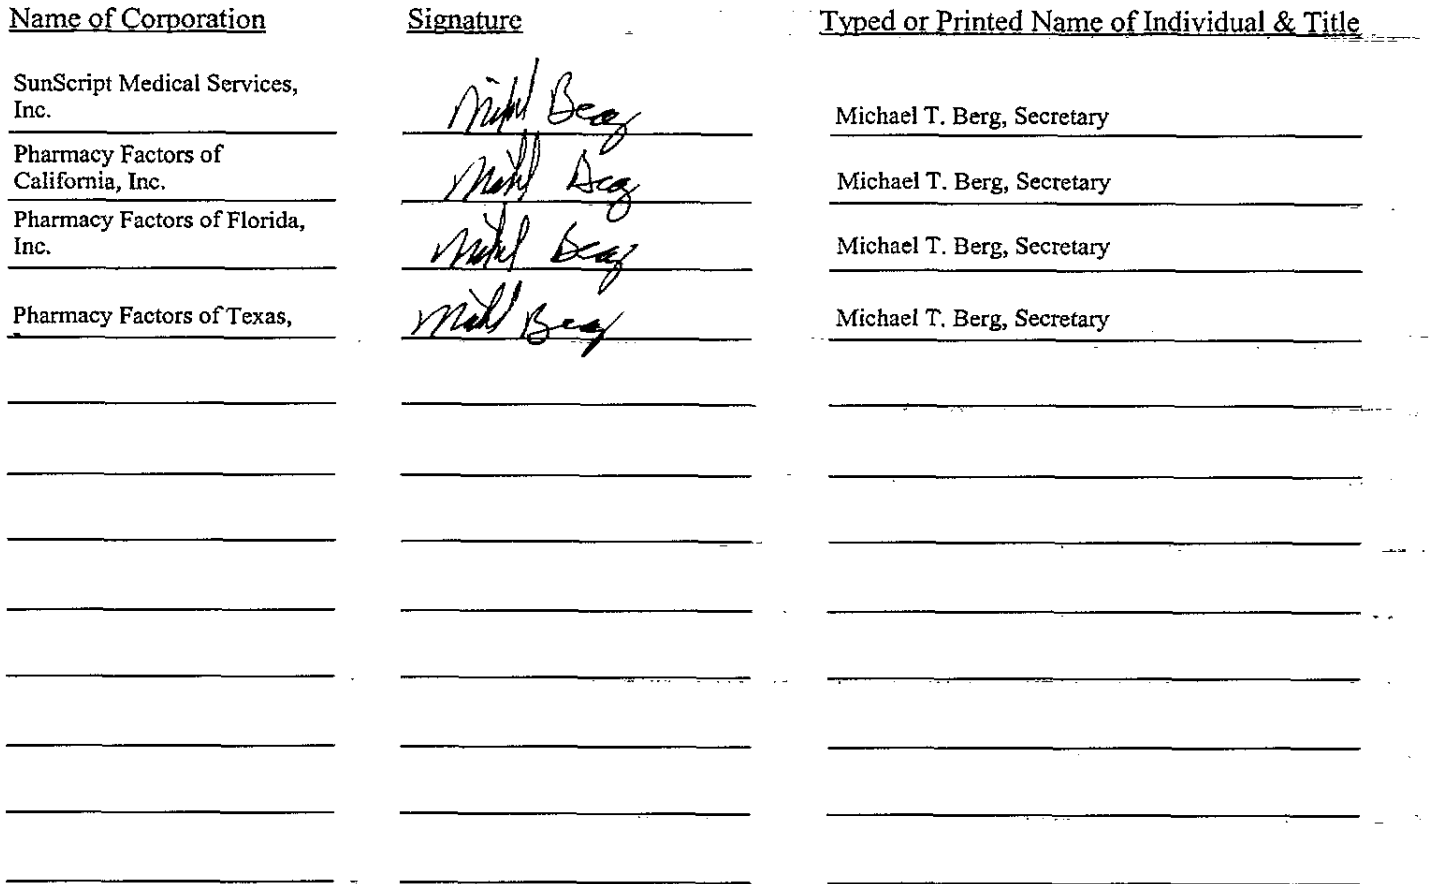 Name of Corporation Signature Typed or Printed Name of Individual & Title
SunScript Medical Services,
Inc.
Michael Berg Michael T. Berg, Secretary
Pharmacy Factors of
California, Inc.
Michael Berg Michael T. Berg, Secretary
Pharmacy Factors of Florida,
Inc.
Michael Berg Michael T. Berg, Secretary
Pharmacy Factors of Texas, Michael Berg Michael T. Berg, Secretary